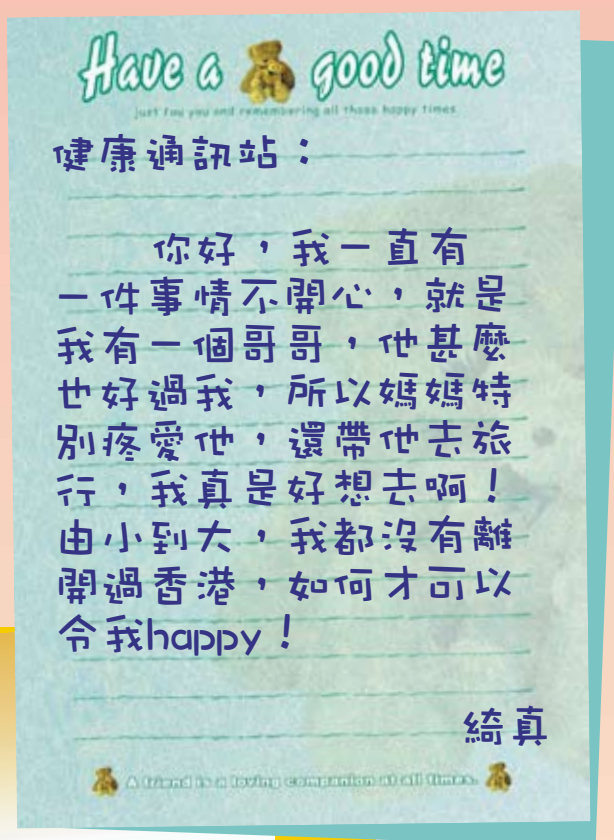 Have a good time
just for you and remembering all those happy times
健康通訊站：
你好，我一直有
一件事情不開心，就是
我有一個哥哥，他甚麼
也好過我，所以媽媽特
別疼愛他，還帶他去旅
行，我真是好想去啊！
由小到大，我都沒有離
開過香港，如何才可以
令我happy！
綺真
A friend is a loving companion at all times.